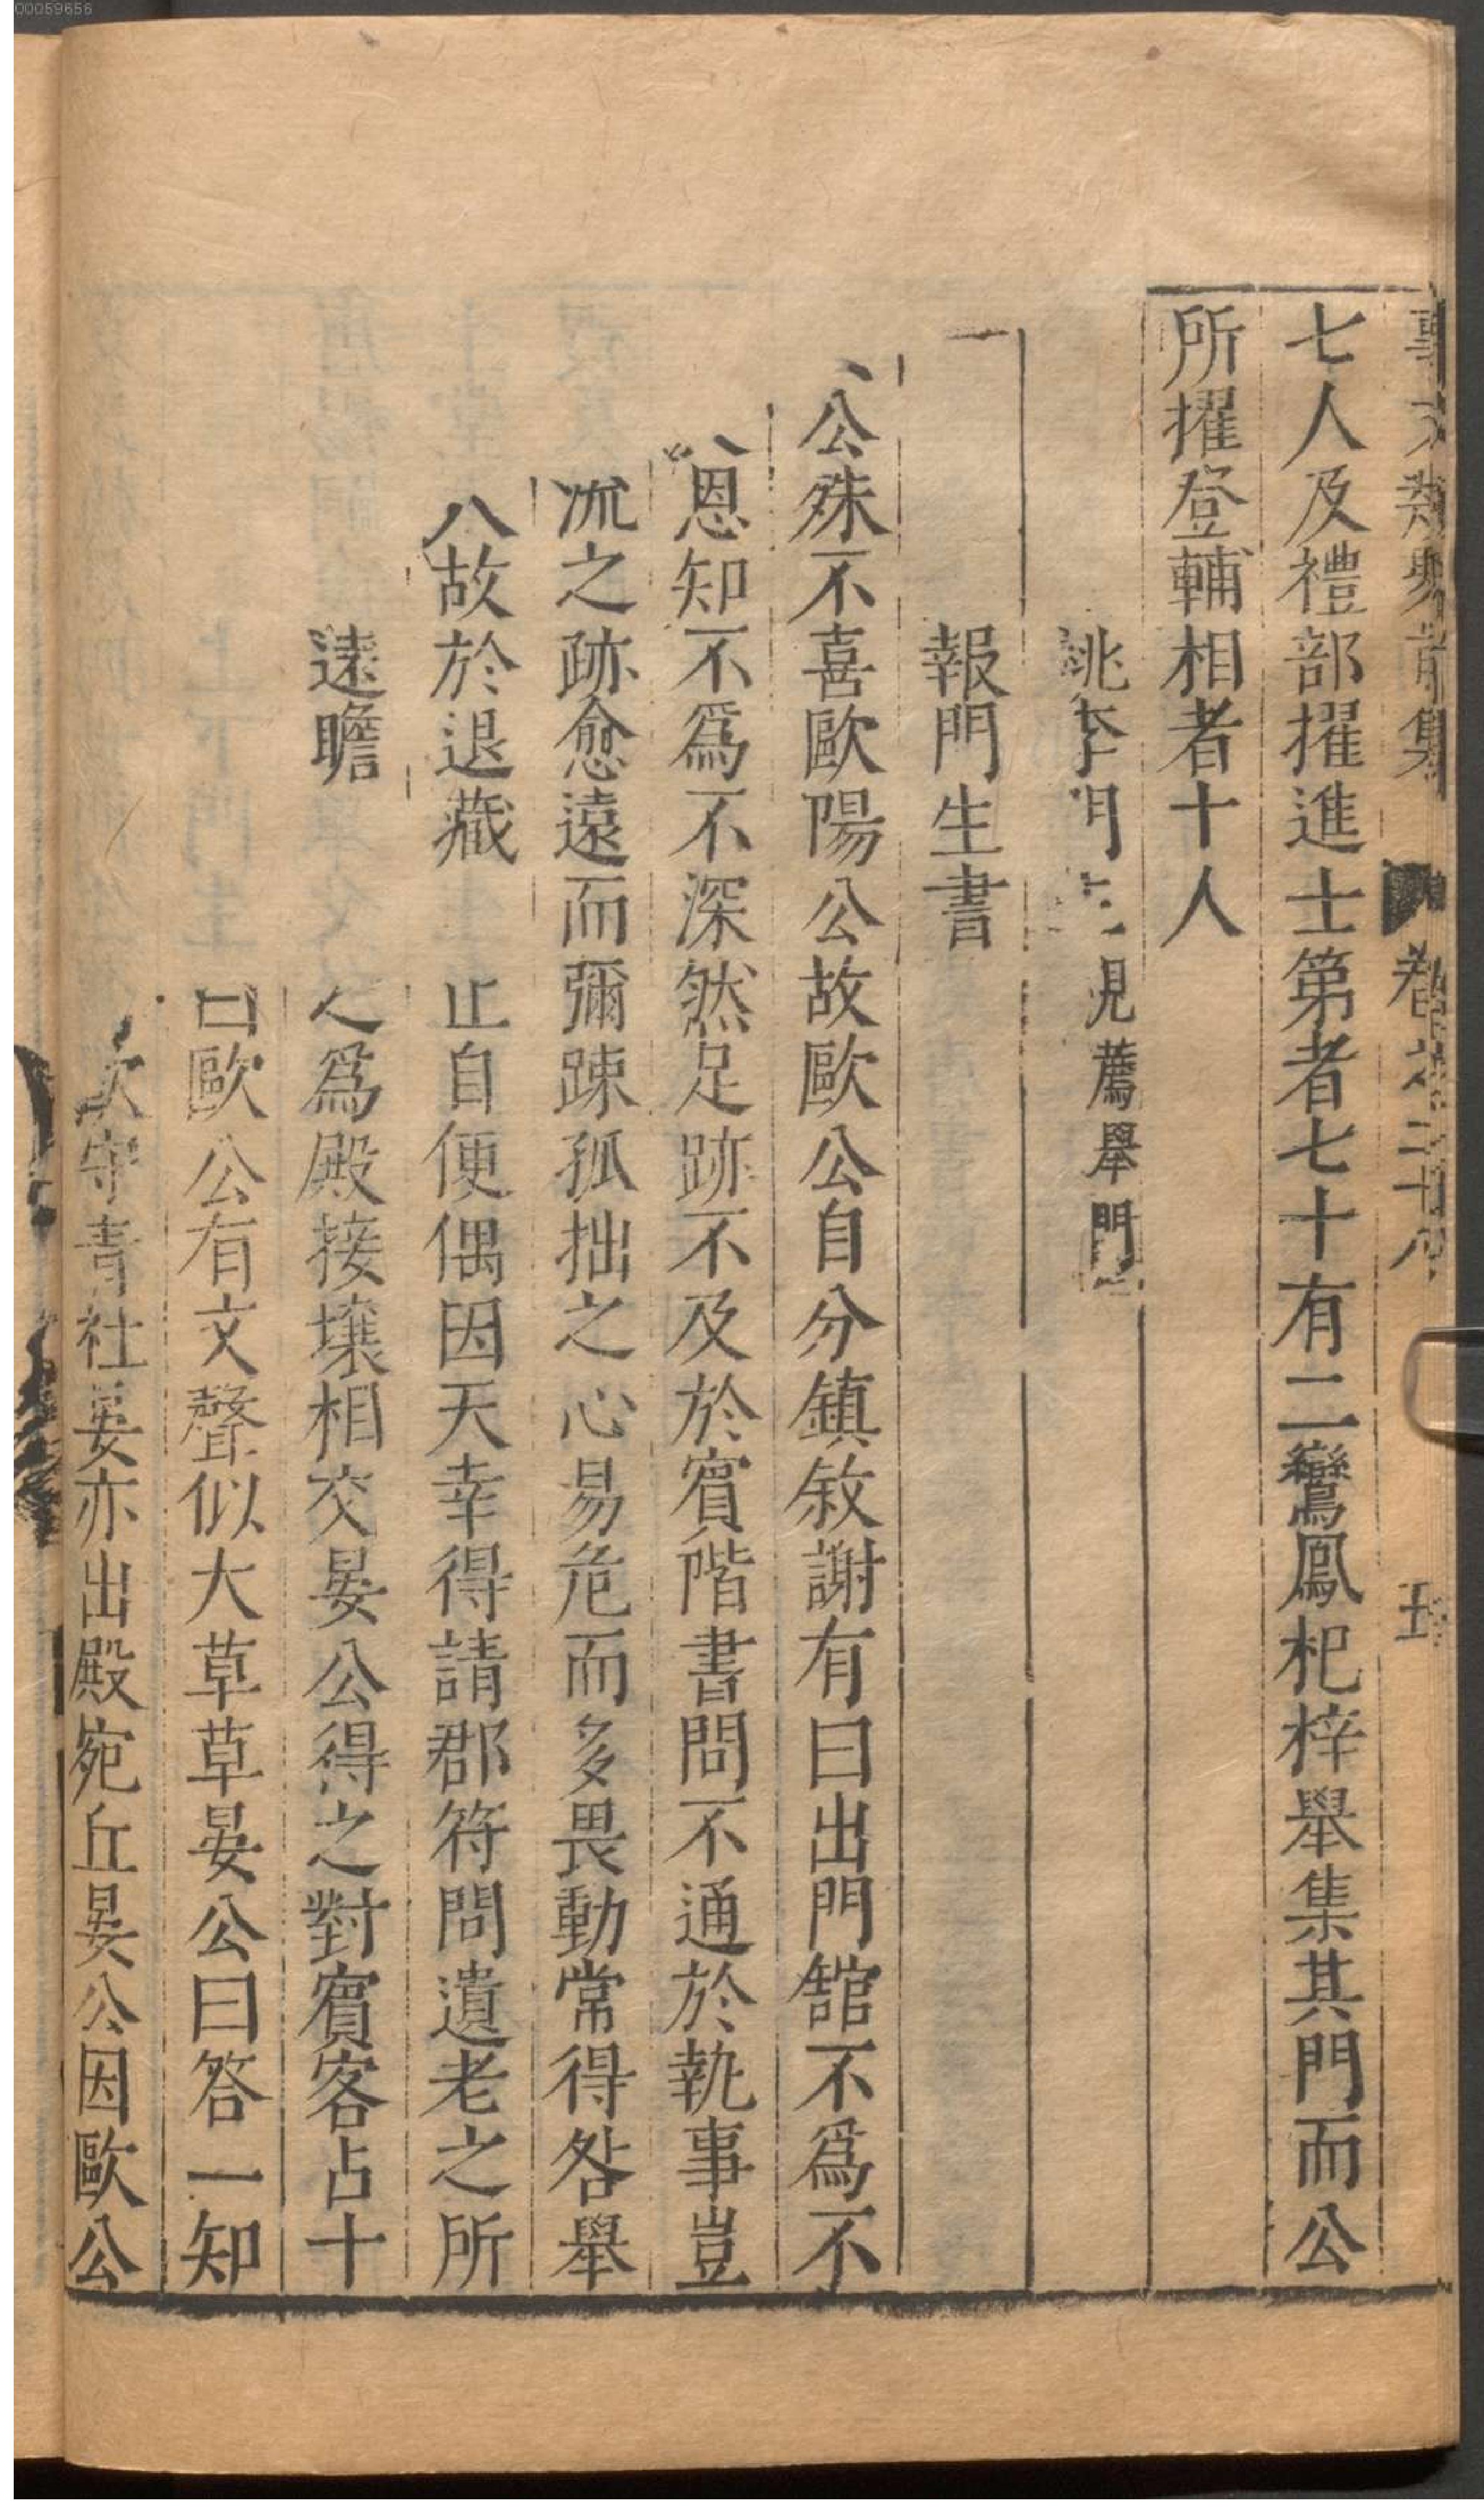 00059656
事文類聚前集 卷之二十九
七人及禮部擢進士第者七十有二鸞鳳杞梓舉集其門而公
所擢登輔相者十人
桃李門 見薦舉門
報門生書
公殊不喜歐陽公故歐公自分鎮敘謝有曰出門舘不爲不
恩知不爲不深然足跡不及於賓階書問不通於執事豈
之跡愈遠而彌踈孤拙之心易危而多畏動常得咎舉
故於退藏 自便偶因天幸得請郡符問遺老之所
遠瞻 爲殿接壤相交晏公得之對賓客占十
曰歐公有文聲似大草草晏公曰答一知
守青社晏亦出殿宛丘晏公因歐公